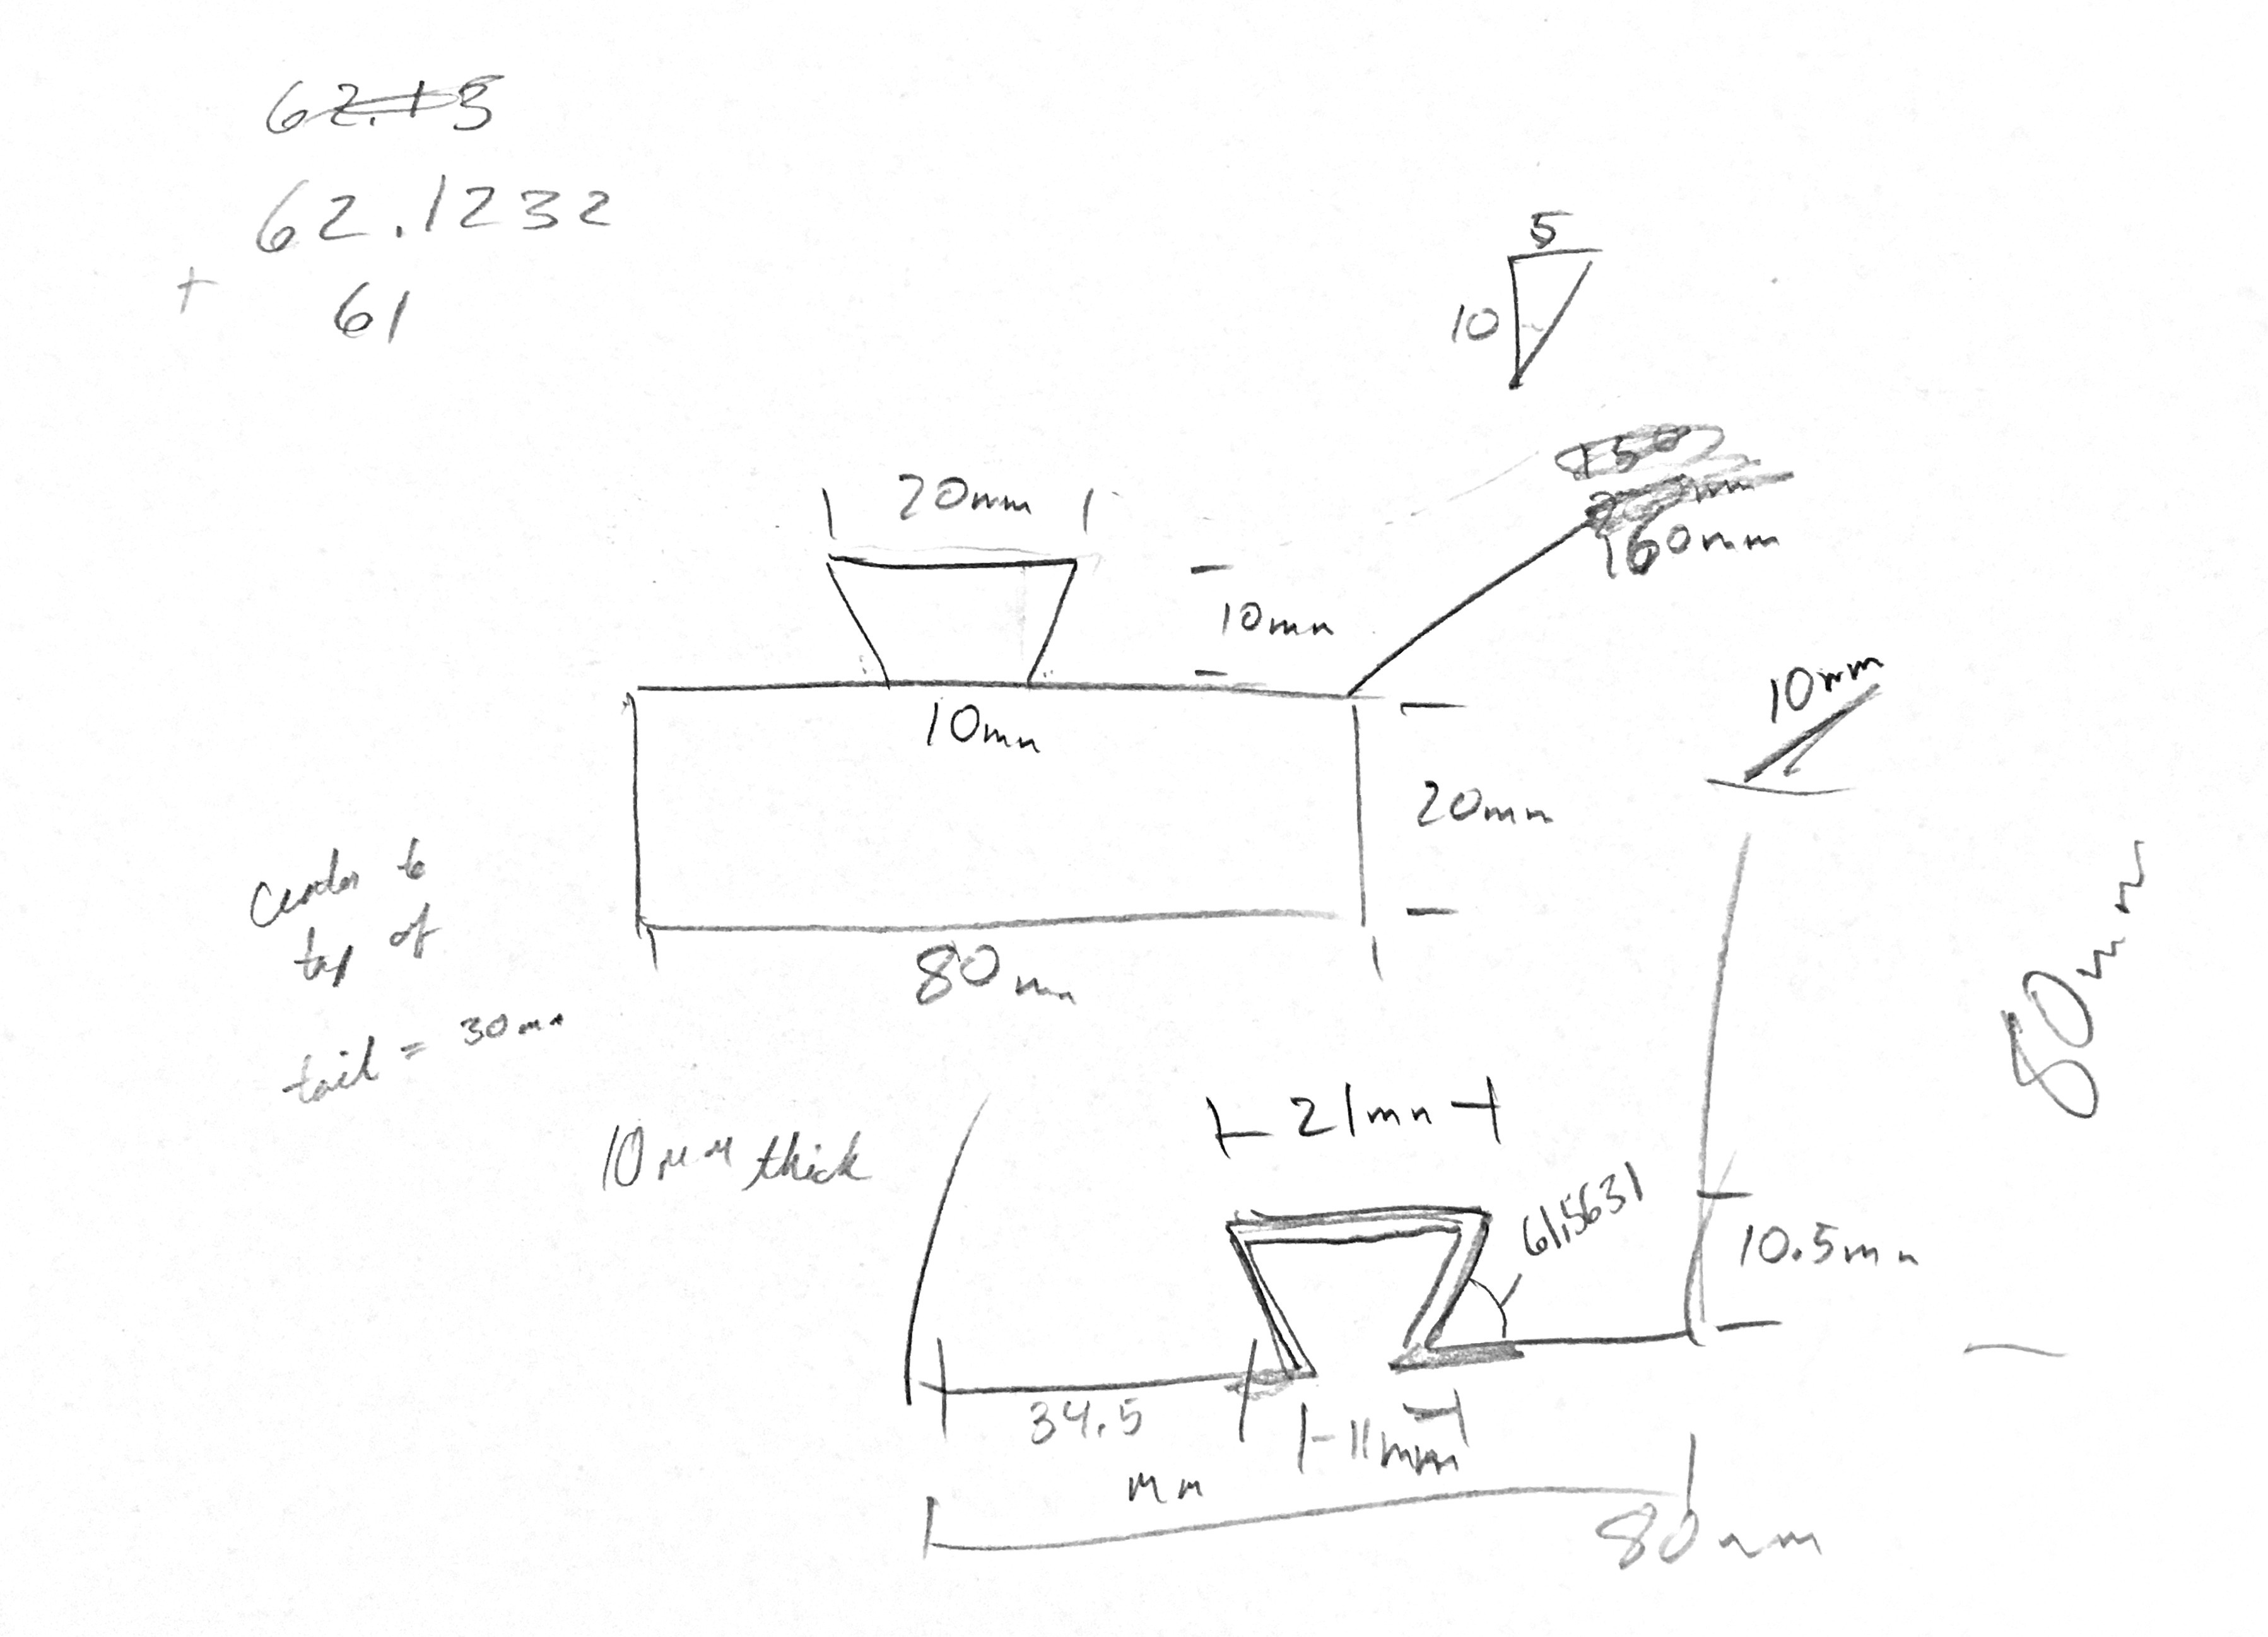 62.1232
+ 61
5
10
20mm
160mm
10mm
10mm
10mm
20mm
80mm
center to
top of
tail = 30mm
80mm
10mm thick
21mm
61.5631
10.5mm
34.5
mm
11mm
80mm